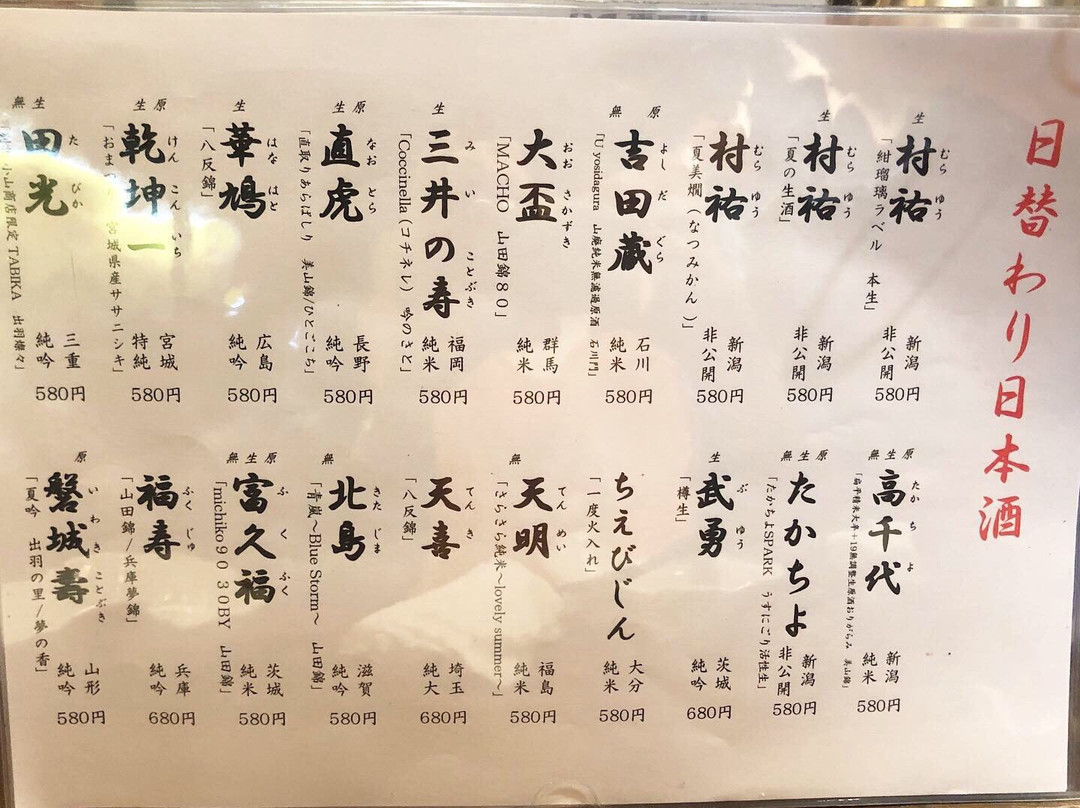 日替わり日本酒
生
村祐
むらゆう
「紺瑠璃ラベル 本生」
新潟
非公開
580円
生
村祐
むらゆう
「夏の生酒」
新潟
非公開
580円
村祐
むらゆう
「夏美燗（なつみかん）」
新潟
非公開
580円
無原
吉田蔵
よしだぐら
「U yosidagura 山廃純米無濾過原酒 石川門」
石川
純米
580円
大盃
おおさかずき
「MACHO 山田錦80」
群馬
純米
580円
生
三井の寿
みいことぶき
「Coccinella（コチネレ）吟のさと」
福岡
純米
580円
生原
直虎
なおとら
「直取りあらばしり 美山錦/ひとごこち」
長野
純吟
580円
生
華鳩
はなはと
「八反錦」
広島
純吟
580円
生原
乾坤一
けんこんいち
「おま 宮城県産ササニシキ」
宮城
特純
580円
無生
田光
たびか
小山商店限定 TABIKA 出羽燦々」
三重
純吟
580円
無生原
高千代
たかちよ
「扁平精米大辛+19無調整生原酒おりがらみ 美山錦」
新潟
純米
580円
無生原
たかちよ
「たかちよSPARK うすにごり活性生」
新潟
非公開
580円
生
武勇
ぶゆう
「樽生」
茨城
純吟
680円
ちえびじん
「一度火入れ」
大分
純米
580円
無
天明
てんめい
「さらさら純米〜lovely summer〜」
福島
純米
580円
天喜
てんき
「八反錦」
埼玉
純大
680円
無
北島
きたじま
「青嵐〜Blue Storm〜 山田錦」
滋賀
純吟
580円
無生原
富久福
ふくふく
「michiko90 30BY 山田錦」
茨城
純米
580円
福寿
ふくじゅ
「山田錦/兵庫夢錦」
兵庫
純吟
680円
原
磐城壽
いわきことぶき
「夏吟 出羽の里/夢の香」
山形
純吟
580円